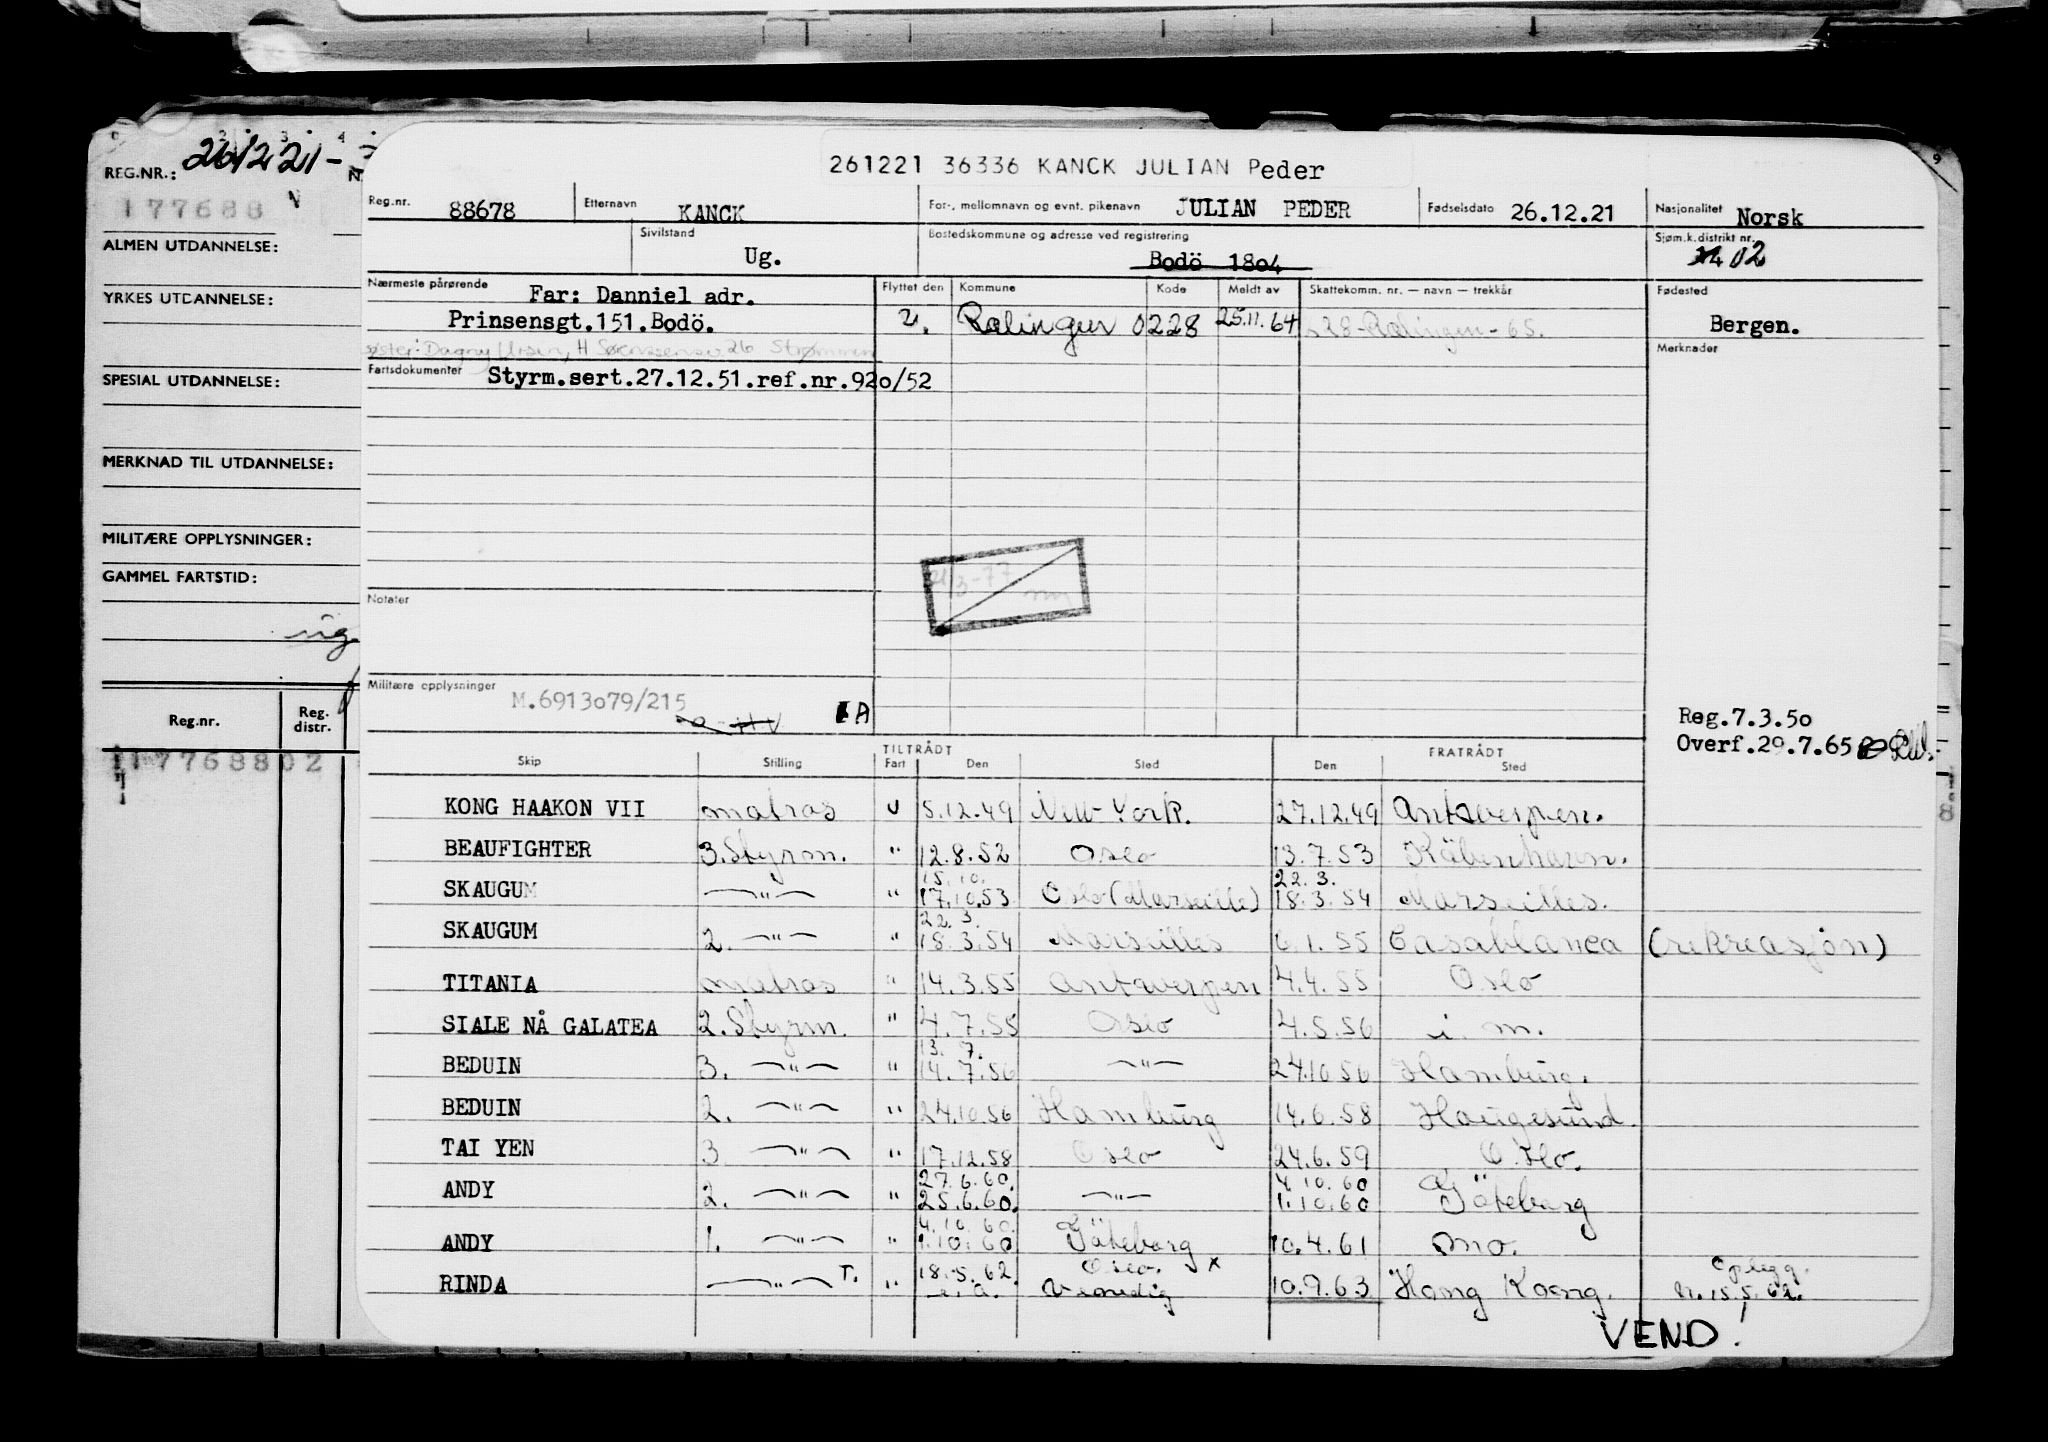 REG.NR.: 261221-
177688
ALMEN UTDANNELSE:
YRKES UTDANNELSE:
SPESIAL UTDANNELSE:
MERKNAD TIL UTDANNELSE:
MILITÆRE OPPLYSNINGER:
GAMMEL FARTSTID:
ug
Reg.nr. Reg. distr.
17768802
261221 36336 KANCK JULIAN Peder
Reg.nr. 88678 Etternavn KANCK For-, mellomnavn og evnt. pikenavn JULIAN PEDER Fødselsdato 26.12.21 Nasjonalitet Norsk
Sivilstand Ug. Bostedskommune og adresse ved registrering Bodö 1804 Sjøm.k.distrikt nr. 02
Nærmeste pårørende Far: Danniel adr. Flyttet den Kommune Kode Meldt av Skattekomm. nr. — navn — trekkår Fødested
Prinsensgt.151.Bodö. u. Rælingen 0228 25.11.64 28-Rælingen-65. Bergen.
søster: Dagny Ursin, H Sørenssensv. 26 Strømmen Merknader
Fartsdokumenter Styrm.sert.27.12.51.ref.nr.92o/52
21/3-77
Notater
Militære opplysninger M.6913o79/215 A
Reg.7.3.5o
Overf.29.7.65
Skip Stilling TILTRÅDT Fart Den Sted FRATRÅDT Den Sted
KONG HAAKON VII matros U 5.12.49 New-York. 27.12.49 Antwerpen.
BEAUFIGHTER 3.Styrm. " 12.8.52 Oslo 13.7.53 Köbenhavn.
15.10. 22.3.
SKAUGUM —"— " 17.10.53 Oslo (Marseille) 18.3.54 Marseilles.
22.3.
SKAUGUM 2. —"— " 18.3.54 Marseilles 6.1.55 Casablanca (rekreasjon)
TITANIA matros " 14.3.55 Antwerpen 4.4.55 Oslo
SIALE NÅ GALATEA 2.Styrm. " 4.7.55 Oslo 4.5.56 i. m.
13.7.
BEDUIN 3. —"— " 14.7.56 —"— 24.10.56 Hamburg.
BEDUIN 2. —"— " 24.10.56 Hamburg 14.6.58 Haugesund.
TAI YEN 3 —"— " 17.12.58 Oslo 24.6.59 Oslo.
27.6.60. 4.10.60
ANDY 2. —"— " 25.6.60. —"— 1.10.60 Göteborg
4.10.60.
ANDY 1. —"— " 1.10.60 Göteborg 10.4.61 Mo.
18.5.62. Oslo. x Opplegg.
RINDA —"— T. " e.a. Venedig 10.9.63 Hong Kong. n. 15.5.62.
VEND!